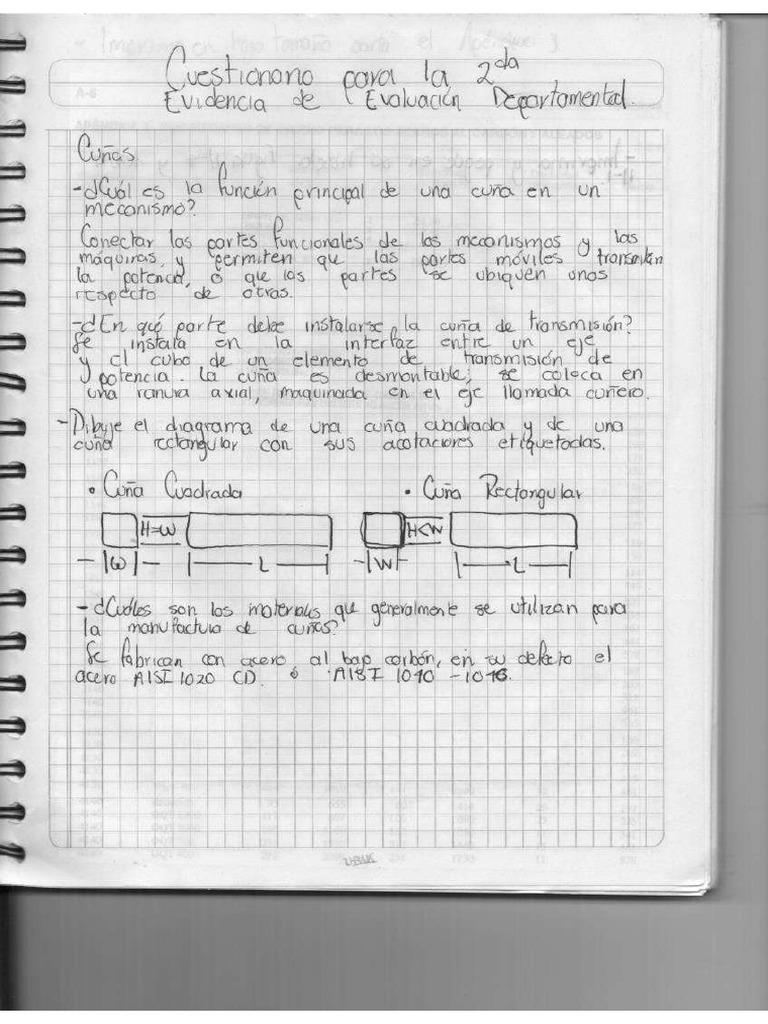 Cuestionario para la 2da
Evidencia de Evaluación Departamental.
Cuñas
-¿Cuál es la función principal de una cuña en un
mecanismo?
Conectar las partes funcionales de los mecanismos y las
máquinas, y permiten que las partes móviles transmitan
la potencia, o que las partes se ubiquen unas
respecto de otras.
-¿En qué parte debe instalarse la cuña de transmisión?
Se instala en la interfaz entre un eje
y el cubo de un elemento de transmisión de
potencia. La cuña es desmontable; se coloca en
una ranura axial, maquinada en el eje llamada cuñero.
-Dibuje el diagrama de una cuña cuadrada y de una
cuña rectangular con sus acotaciones etiquetadas.
• Cuña Cuadrada • Cuña Rectangular
H=W H<W
W L W L
-¿Cuáles son los materiales que generalmente se utilizan para
la manufactura de cuñas?
Se fabrican con acero al bajo carbón, en su defecto el
acero AISI 1020 CD. ó AISI 1040 -
A-6